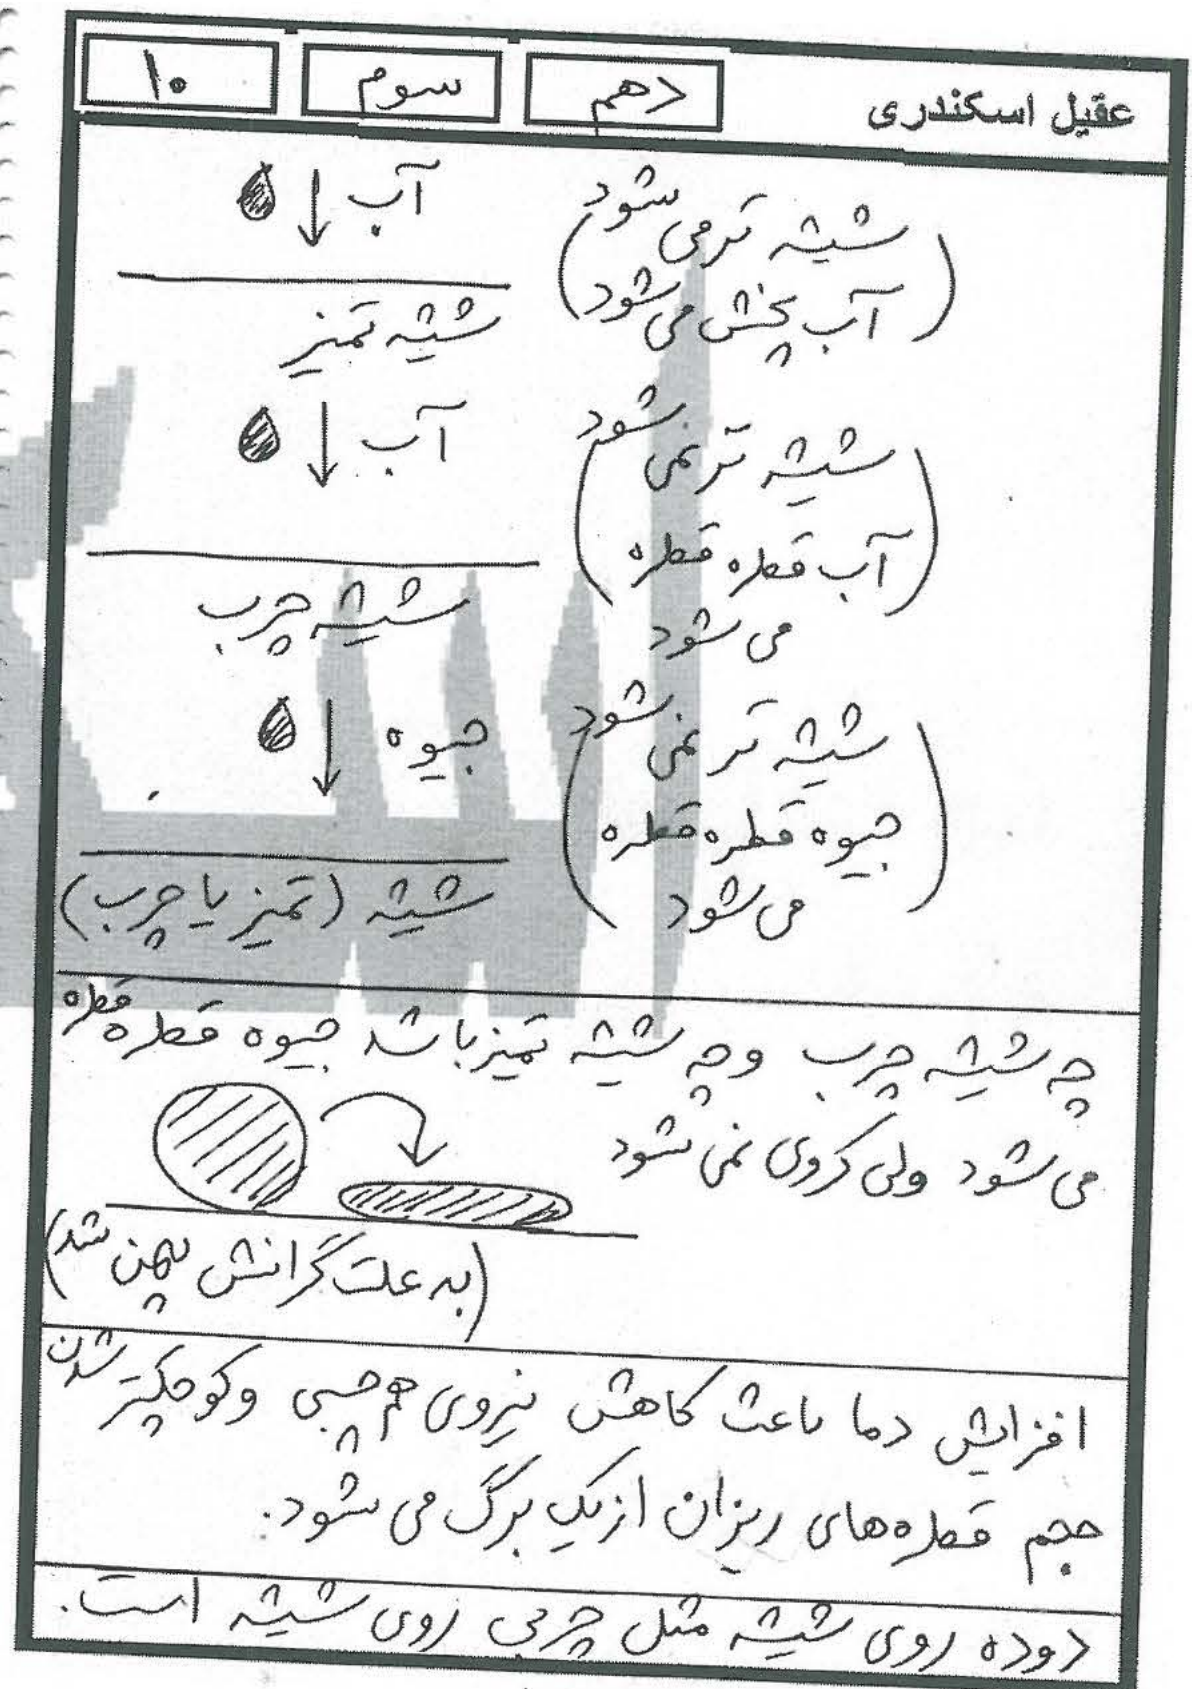 عقیل اسکندری
دهم
سوم
۱۰
آب
شیشه تر می شود
آب پخش می شود
شیشه تمیز
آب
شیشه تر نمی شود
آب قطره قطره
می شود
شیشه چرب
جیوه
شیشه تر نمی شود
جیوه قطره قطره
می شود
شیشه (تمیز یا چرب)
چه شیشه چرب و چه شیشه تمیز باشد جیوه قطره قطره
می شود ولی کروی نمی شود
(به علت گرانش پهن شد)
افزایش دما باعث کاهش نیروی هم چسبی و کوچکتر شدن
حجم قطره های ریزان از یک برگ می شود.
دوده روی شیشه مثل چربی روی شیشه است.